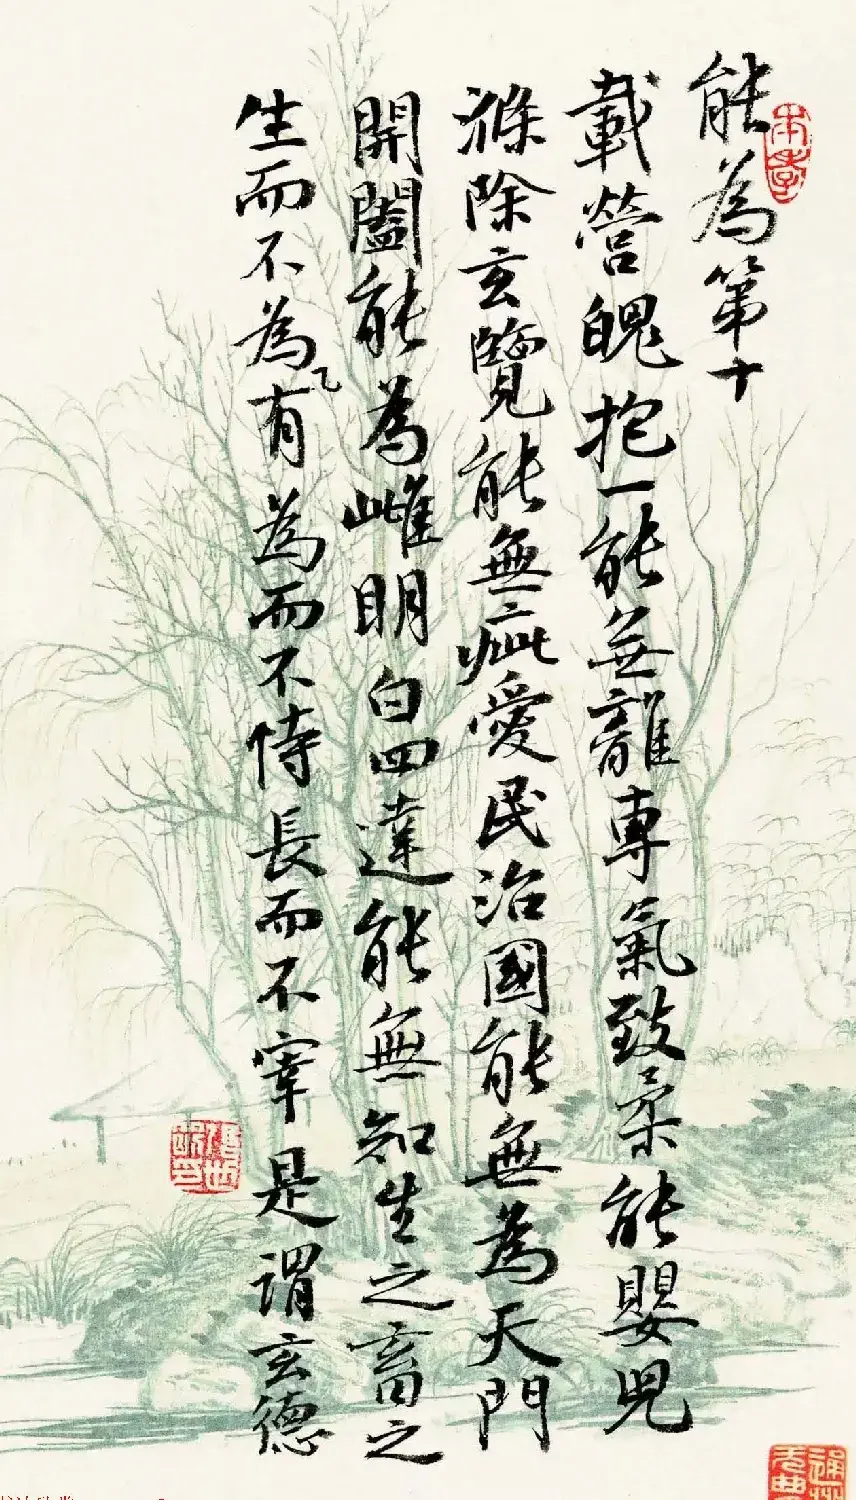 能為第十
載營魄抱一能無離專氣致柔能嬰兒
滌除玄覽能無疵愛民治國能無為天門
開闔能為雌明白四達能無知生之畜之
生而不為有為而不恃長而不宰是謂玄德